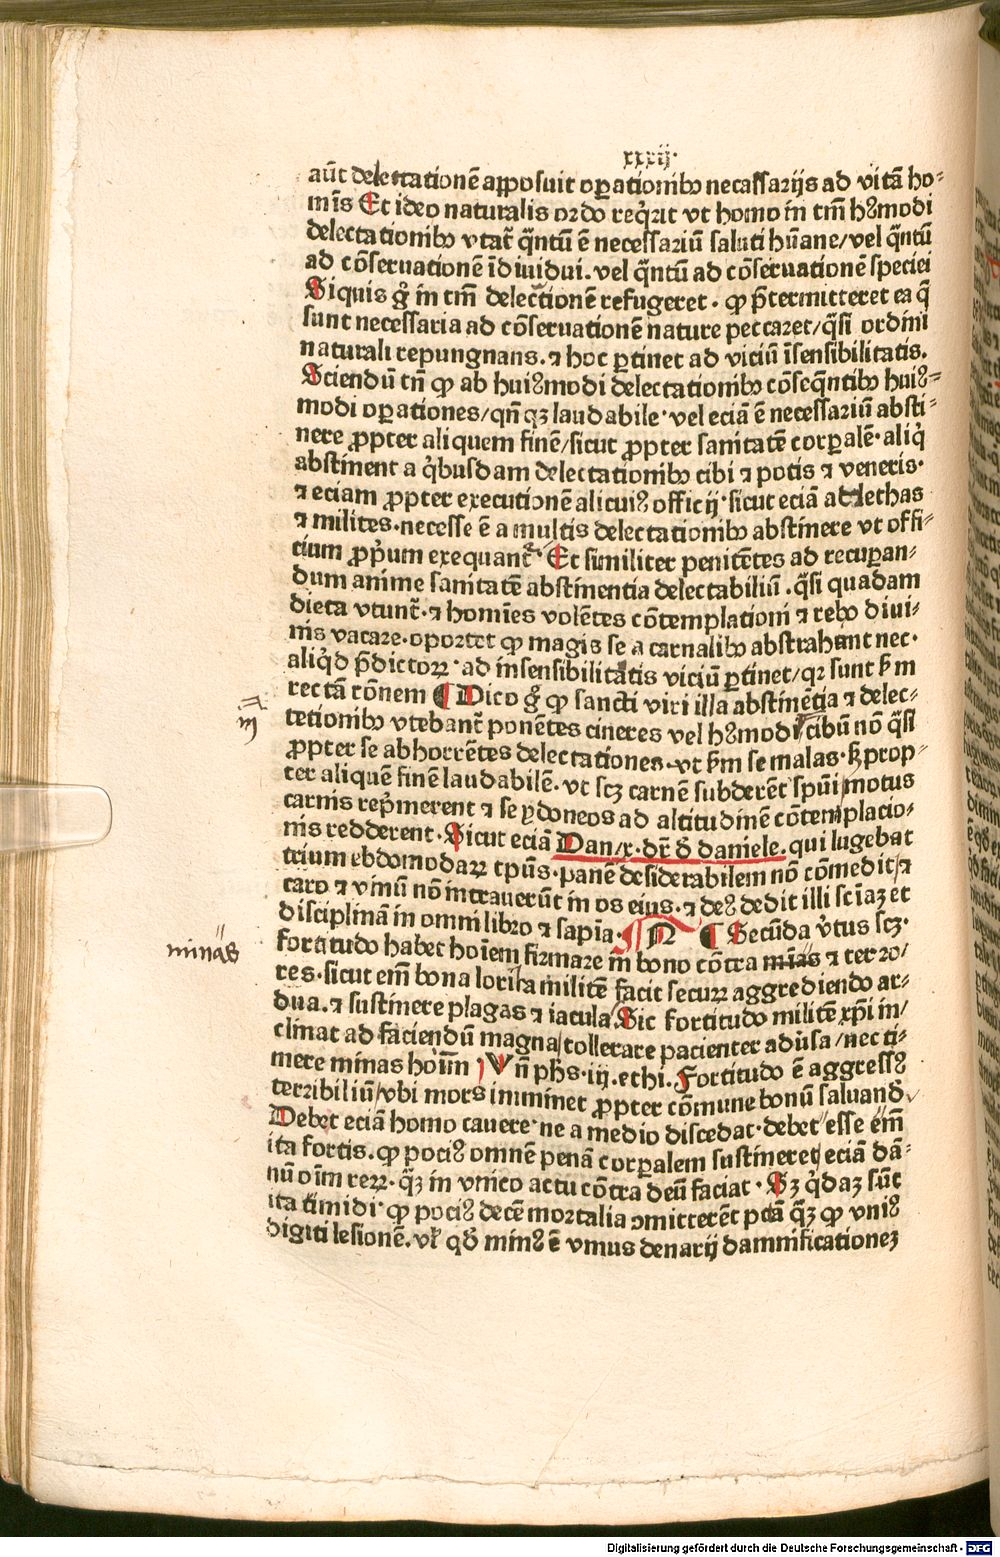 xxxij.
aūt delectationē apposuit oꝑationibꝫ necassarijs ad vitā ho⸗
mīs Et ideo naturalis ordo reqͥrit vt homo in tm̄ hꝰmodi
delectationibꝫ vtat̄ qͣntū ē necessariū saluti hūane/vel qͣntū
ad cōseruationē īdiuidui. vel qͣntū ad cōseruationē speciei
Siquis gͦ in tm̄ delectionē refugeret. ꝙ p̄termitteret ea q̄
sunt necessaria ad cōseruationē nature peccaret/qͣsi ordini
naturali repungnans. ⁊ hoc ꝑtinet ad viciū īsensibilitatis.
Sciendū tn̄ ꝙ ab huiꝰmodi delectationibꝫ cōseqn̄tibꝫ huiꝰ⸗
modi oꝑationes/qn̄qꝫ laudabile· vel eciā ē necessariū absti⸗
nere ꝓpter aliquem finē/sicut ꝓpter sanitatē corꝑalē· aliqͥ
abstinent a qͥbusdam delectationibꝫ cibi ⁊ potis ⁊ veneris·
⁊ eciam ꝓpter executionē alicuiꝰ officij· sicut eciā adlethas
⁊ milites· necesse ē a multis delectationibꝫ abstinere vt offi⸗
cium ꝓpͥum exequant̄· Et similiter penitētes ad recuꝑan⸗
dum anime sanitatē abstinentia delectabiliū. qͣsi quadam
dieta vtunt̄· ⁊ homīes volētes cōtemplationi ⁊ rebꝫ diui⸗
nis vacare· oportet ꝙ magis se a carnalibꝫ abstrahant nec·
aliqͥd p̄dictoꝝ· ad insensibilitatis viciū ꝑtinet/qꝛ sunt ẜm
rectā rōnem ¶ Dico gͦ ꝙ sancti viri illa abstinētia ⁊ delec⸗
tetionibꝫ vtebant̄ ponētes cineres vel hꝰmodi cibū nō qͣsi
ꝓpter se abhorrētes delectationes· vt ẜm se malas· sꝫ prop⸗
ter aliquē finē laudabilē· vt scꝫ carnē subderēt spūi motus
carnis rep̄merent ⁊ se ydoneos ad altitudinē cōtemplacio⸗
nis redderent· Sicut eciā Dan/x· dr̄ ꝺ̄ daniele. qui lugebat
trium ebdomodaꝝ tpūs· panē desiderabilem nō cōmedit/⁊
caro ⁊ vinū nō intrauerūt in os eius· ⁊ deꝰ dedit illi sciāꝫ et
disciplinā in omni libro ⁊ sapīa· N ¶ Secūda v̓tus scꝫ·
fortitudo habet hoīem firmare in bono cōtra mīas ⁊ terro/
res· sicut em̄ bona lorica militē facit securꝝ aggrediendo ar⸗
dua. ⁊ sustinere plagas ⁊ iacula Sic fortitudo militē xp̄i in/
clinat ad faciendū magna/tollerare pacienter adūsa/nec ti⸗
mere minas hoīm Vn̄ ph̄s· iij. ethi. Fortitudo ē aggressꝰ
terribiliū vbi mors imminet ꝓpter cōmune bonū saluandū
Debet eciā homo cauere· ne a medio discedat· debet esse em̄
ita fortis. ꝙ pociꝰ omnē penā corꝑalem sustineret eciā dā⸗
nū oīm reꝝ· qͣꝫ in vnico actu cōtra deū faciat· Sꝫ qͥdaꝫ sūt
ita timidi· ꝙ pociꝰ decē mortalia ɔmitterēt pctā qͣꝫ ꝙ vniꝰ
digiti lesionē. vl̓ qd̓ minꝰ ē vnius denarij damnificationeꝫ
iij
minas
Digitalisierung gefördert durch die Deutsche Forschungsgemeinschaft - DFG